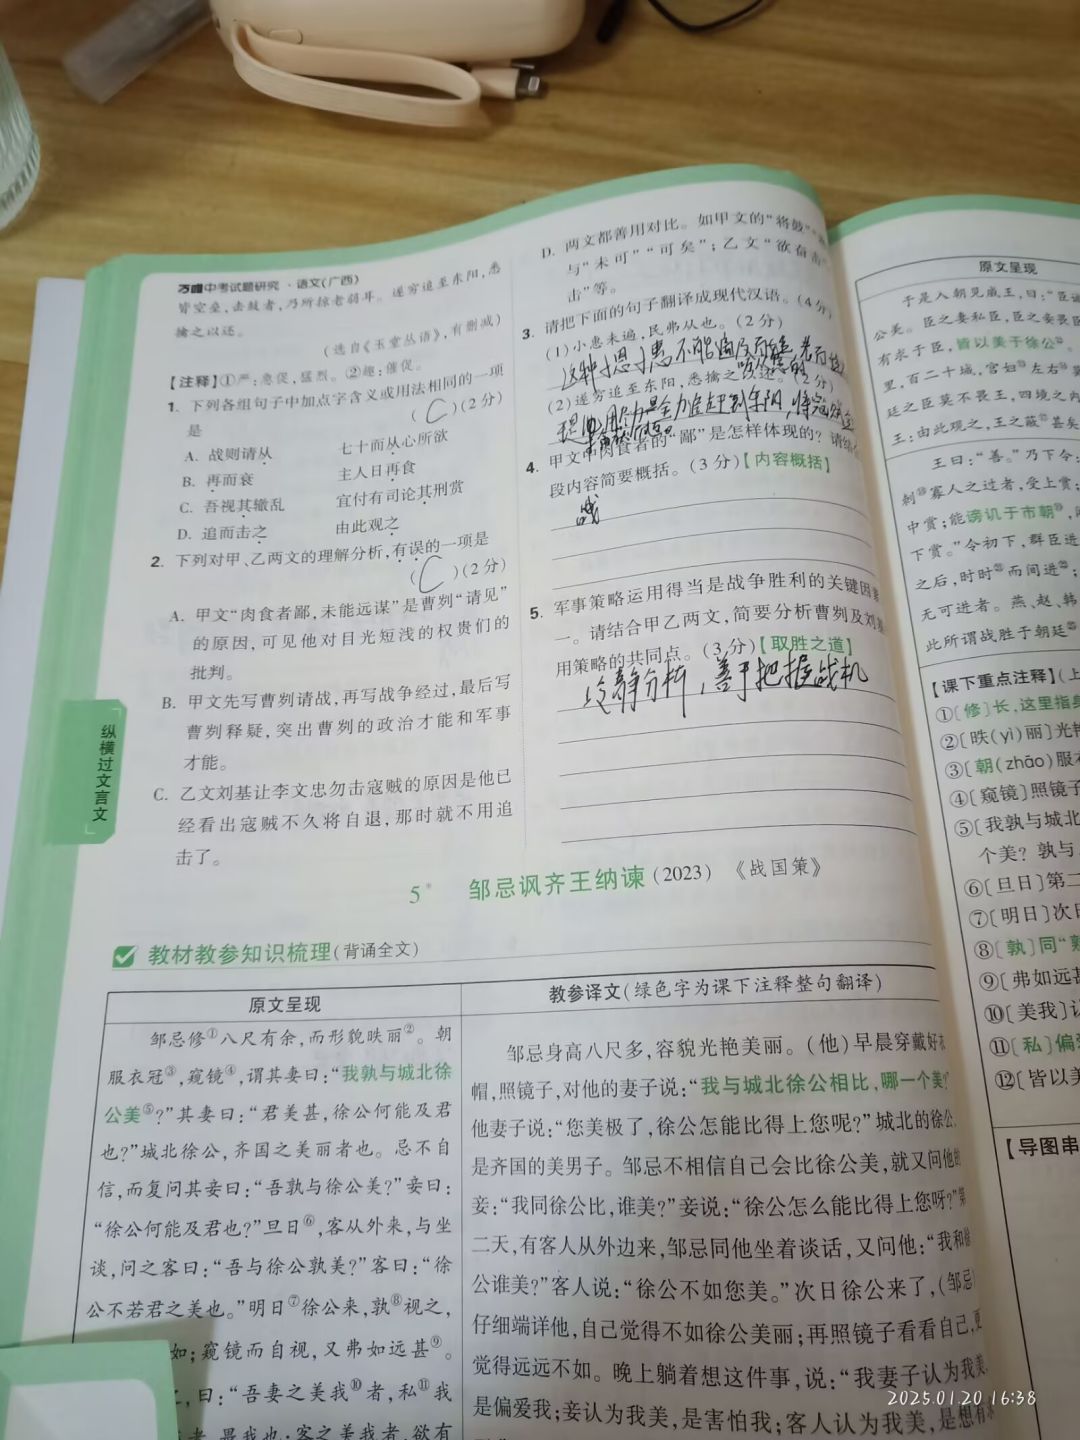 万唯中考试题研究·语文(广西)
皆空垒,击鼓者,乃所掠老弱耳。遂穷追至东阳,悉
擒之以还。
(选自《玉堂丛语》,有删减)
【注释】①严:急促,猛烈。②趣:催促。
1. 下列各组句子中加点字含义或用法相同的一项
是 ( C )(2分)
A. 战则请从 七十而从心所欲
B. 再而衰 主人日再食
C. 吾视其辙乱 宜付有司论其刑赏
D. 追而击之 由此观之
2. 下列对甲、乙两文的理解分析,有误的一项是
( C )(2分)
A. 甲文“肉食者鄙,未能远谋”是曹刿“请见”
的原因,可见他对目光短浅的权贵们的
批判。
B. 甲文先写曹刿请战,再写战争经过,最后写
曹刿释疑,突出曹刿的政治才能和军事
才能。
C. 乙文刘基让李文忠勿击寇贼的原因是他已
经看出寇贼不久将自退,那时就不用追
击了。
纵横过文言文
D. 两文都善用对比。如甲文的“将鼓”
与“未可”“可矣”;乙文“欲奋击”
击”等。
3. 请把下面的句子翻译成现代汉语。(4分)
(1)小惠未遍,民弗从也。(2分)
这种小恩小惠不能遍及
(2)遂穷追至东阳,悉擒之以还。(2分)
全力追赶到东阳,将寇贼
4. 甲文中肉食者的“鄙”是怎样体现的?请结
段内容简要概括。(3分)【内容概括】
战
5. 军事策略运用得当是战争胜利的关键因素
一。请结合甲乙两文,简要分析曹刿及刘基
用策略的共同点。(3分)【取胜之道】
冷静分析,善于把握战机
5 邹忌讽齐王纳谏(2023) 《战国策》
教材教参知识梳理(背诵全文)
原文呈现
邹忌修①八尺有余,而形貌昳丽②。朝
服衣冠③,窥镜④,谓其妻曰:“我孰与城北徐
公美⑤?”其妻曰:“君美甚,徐公何能及君
也?”城北徐公,齐国之美丽者也。忌不自
信,而复问其妾曰:“吾孰与徐公美?”妾曰:
“徐公何能及君也?”旦日⑥,客从外来,与坐
谈,问之客曰:“吾与徐公孰美?”客曰:“徐
公不若君之美也。”明日⑦徐公来,孰⑧视之,
如;窥镜而自视,又弗如远甚⑨。
,曰:“吾妻之美我⑩者,私⑪我
者,畏我也;客之美我者,欲有
教参译文(绿色字为课下注释整句翻译)
邹忌身高八尺多,容貌光艳美丽。(他)早晨穿戴好衣
帽,照镜子,对他的妻子说:“我与城北徐公相比,哪一个美?”
他妻子说:“您美极了,徐公怎能比得上您呢?”城北的徐公,
是齐国的美男子。邹忌不相信自己会比徐公美,就又问他的
妾:“我同徐公比,谁美?”妾说:“徐公怎么能比得上您呀?”第
二天,有客人从外边来,邹忌同他坐着谈话,又问他:“我和徐
公谁美?”客人说:“徐公不如您美。”次日徐公来了,(邹忌)
仔细端详他,自己觉得不如徐公美丽;再照镜子看看自己,更
觉得远远不如。晚上躺着想这件事,说:“我妻子认为我美,
是偏爱我;妾认为我美,是害怕我;客人认为我美,是想有求
原文呈现
于是入朝见威王,曰:“臣诚
公美。臣之妻私臣,臣之妾畏臣
有求于臣,皆以美于徐公
里,百二十城,宫妇左右莫
廷之臣莫不畏王,四境之内
王:由此观之,王之蔽甚矣
王曰:“善。”乃下令:
刺寡人之过者,受上赏;
中赏;能谤讥于市朝
下赏。”令初下,群臣进
之后,时时而间进;
无可进者。燕、赵、韩
此所谓战胜于朝廷
【课下重点注释】(上
①〔修〕长,这里指身
②〔昳(yì)丽〕光艳
③〔朝(zhāo)服衣
④〔窥镜〕照镜子
⑤〔我孰与城北
个美?孰与
⑥〔旦日〕第二
⑦〔明日〕次日
⑧〔孰〕同“熟
⑨〔弗如远甚
⑩〔美我〕认
⑪〔私〕偏爱
⑫〔皆以美
【导图串
2025.01.20 16:38